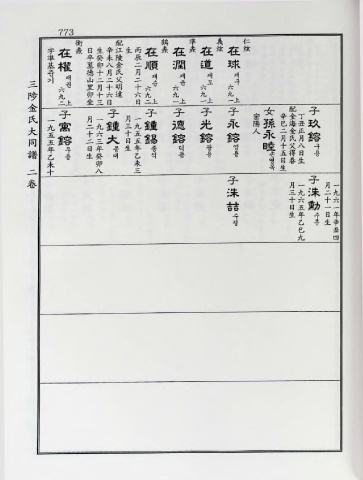 773
三陟金氏大同譜 二卷
仁炫
在球 재구 六九一 上
義炫
在道 재도 六九一 上
準燾
在潤 재윤 六九一 上
鶴燾
在順 재순 六九二 上
丙辰二月二十六日生
配江陵金氏父明達
辛未八月二十六日
生癸卯十二月三
日卒墓德山里卯坐
衡燾
在權 재권 六九二 上
字準基 준기
子玖鎔 구용
丁丑正月八日生
配金海金氏父得春
辛巳二月十五日生
女孫永睦 손영목
密陽人
子永鎔 영용
子光鎔 광용
子德鎔 덕용
子鍾錫 종석
一九五五年乙未三
月三十日生
子鍾大 종대
一九六三年癸卯八
月二十二日生
子寓鎔 우용
一九五五年乙未十
子洙勳 수훈
一九六一年辛丑四
月二十一日生
一九六五年乙巳九
月三十日生
子洙喆 수철